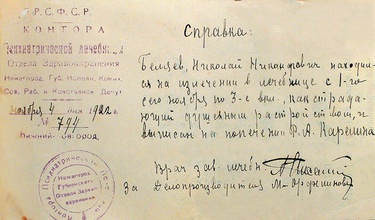 Р.С.Ф.С.Р.
КОНТОРА
Психиатрической лечебницы
Отдела Здравоохранения
Нижегород. Губ. Исполн. Комит.
Сов. Раб. и Крестьянск. Депут
Ноября 4 дня 1922 г.
№ 744
Нижний-Новгород.
Справка:
Беляев, Николай Никандрович находил-
ся на излечении в лечебнице с 1-го
сего ноября по 3-е вкл., как страда-
ющий душевным расстройством, и
выписан на попечение Ф. А. Карелина
Врач зав. лечебн.
За Делопроизводителя
Нижегород.
Губернского
Отдела Здраво-
охранения